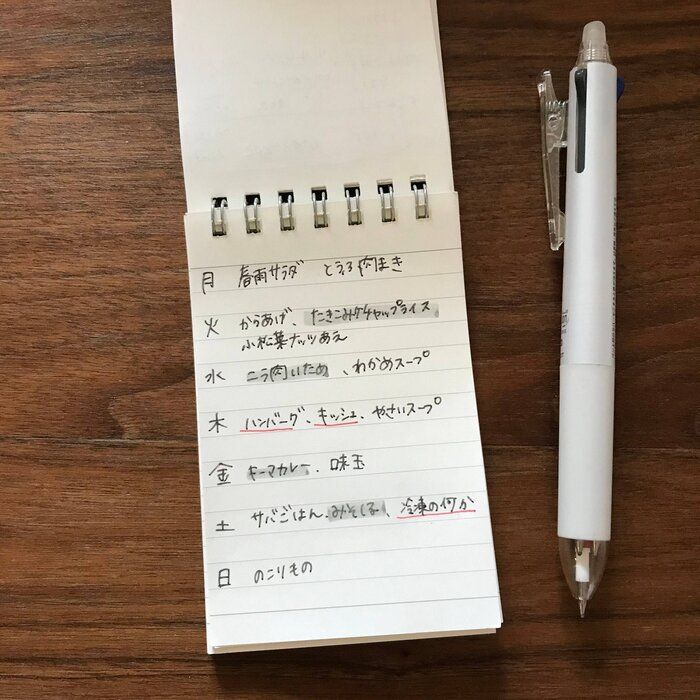 月 春雨サラダ とうふ肉まき
火 からあげ、たきこみケチャップライス
小松菜ナッツあえ
水 ニラ肉いため、わかめスープ
木 ハンバーグ、キッシュ、やさいスープ
金 キーマカレー、味玉
土 サバごはん、みそしる、冷凍の何か
日 のこりもの